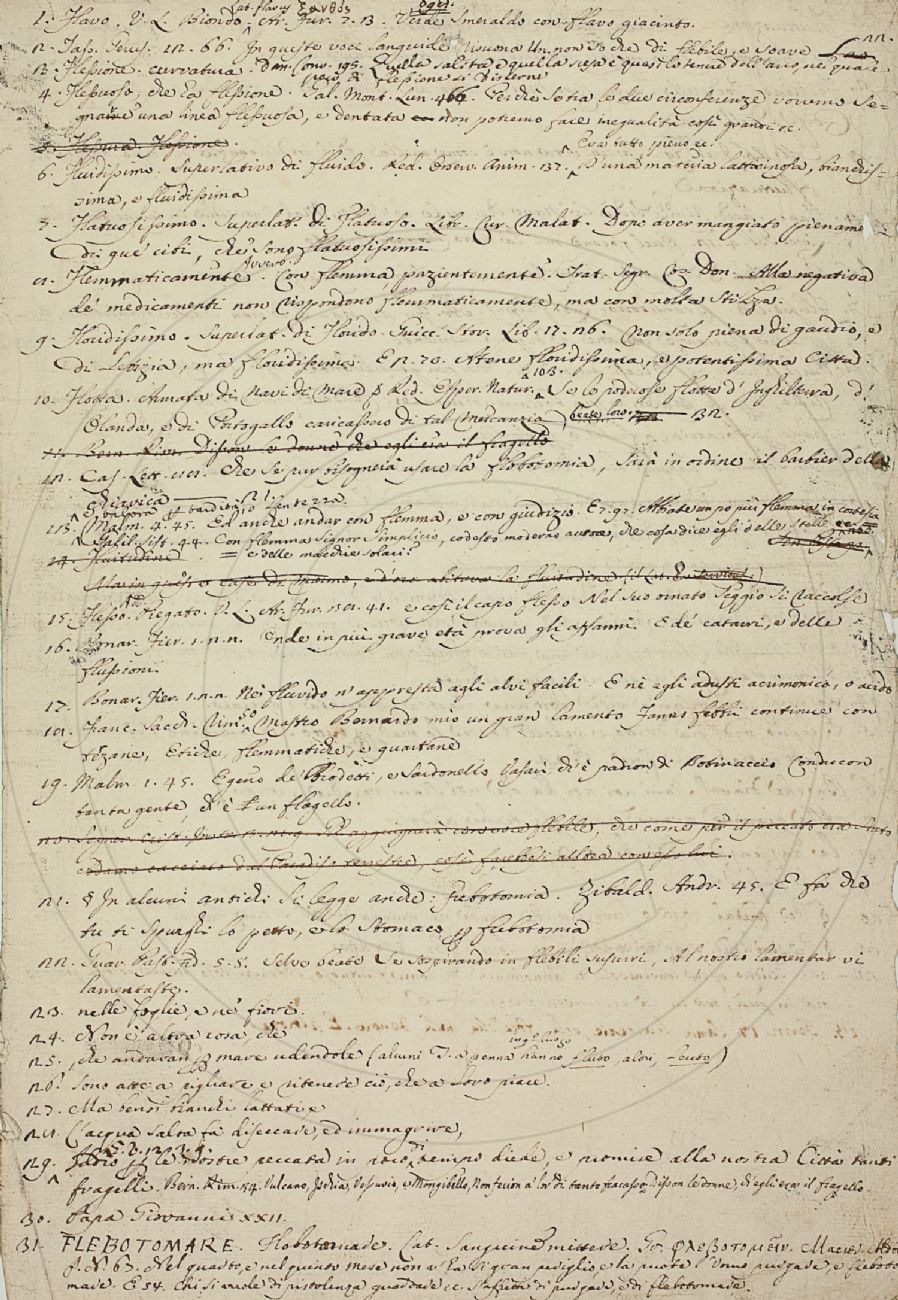 Lat. flavus ξανθός oggi
1. Flavo. V. L. Biondo. Atr. Fur. 7. 13. Verde Smeraldo con flavo giacinto.
2. Tass. Gerus. 12. 66. In queste voci languide risuona Un non so che di flebile, e soave
3. Flessione. curvatura. Dan. Conv. 195. Quella salita e quella scesa è quasi lo tenere dell'arco, nel quale
poco di flessione si discerne
4. Flessuoso, che ha flessione. Gal. Mont. Lun. 466. Perchè sotra le due circonferenze vorremo se-
gnare una linea flessuosa, e dentata non potremo fare inegualità così grandi ec.
5. Flessura Flessione.
Era tutto pieno ec.
6. Fluidissimo. Superlativo di fluido. Red. Osserv. Anim. 137. d'una materia lattiginosa, bianchis-
sima, e fluidissima
7. Flatuosissimo. Superlat. di Flatuoso. Libr. Cur. Malat. Dopo aver mangiato pienamente
di que' cibi, che sono flatuosissimi
8. Flemmaticamente. Avverb. Con flemma, pazientemente. Trat. Segr. Cos. Don. Alla negativa
de' medicamenti non rispondono flemmaticamente, ma con molta stizza.
9. Floridissimo. Superlat. di Florido. Guicc. Stor. Lib. 17. 26. Non solo piena di gaudio, e
di letizia, ma floridissima. E 2. 70. Atene floridissima, e potentissima Città.
10. Flotta. Armata di Navi di Mare Red. Esper. Natur. 103. Se le poderose flotte d'Inghilterra, d'
Olanda, e di Portogallo caricassero di tal mercanzia, beate loro 32.
11. Bern. Rim. Disson le donne che egli era il fragello
12. Cas. Lett. Che se pur bisognerà usare la flobotomia, sarà in ordine il barbier della
chiavica
13. Malm. 4. 45. Ed anche andar con flemma, e con giudizio. E 7. 97. Abbiate un po più flemma in cortesia
Galil. Sist. 44. Con flemma Signor Simplicio, codesto moderno autore, che cosa dice egli delle stelle
14. Fluitudine e delle macchie solari?
15. Flesso. Piegato. V. L. Atr. Fur. 41. e così il capo flesso Nel suo ornato seggio si raccolse
16. Bonar. Fier. 1. 2. 2. Onde in più grave età prova gli affanni E de' catarri, e delle
flussioni
17. Bonar. Fier. 1. 2. 2. Nè fluvido n'appresta agli alvi facili E nè agli adusti acrimonico, o acido
18. Franc. Sacch. Rim. Mastro Bernardo mio un gran lamento Fanno febbri continue con
tizane, Etiche, flemmatiche, e quartane
19. Malm. 1. 45. Egeno de' Brodetti, e Sardonello Vasari, ch'è padron di Botinaccio Conducon
tanta gente, ch'è un flagello.
20. Segner. Crist. Instr. 1. 21. 9. Vi aggiugnerà con voce flebile, che come per il peccato era stato
Adamo cacciato dal Paradiso terrestre, così farebbesi allora con esso lui.
21. § In alcuni antichi si legge anche: Fiebotomia. Zibald. Andr. 45. E fa che
tu ti spurghi lo petto, e lo stomaco per fiebotomia
22. Guar. Past. Fid. 5. 8. Selve beate Se sospirando in flebili susurri, Al nostro lamentar vi
lamentaste.
23. nelle foglie, e ne' fiori.
24. Non è altra cosa, che
25. , che andavan per mare udendole (alcuni T. a penna hanno in questo luogo flusso, altri, leuto)
26. sono atte a pigliare e ritenere ciò, che a loro piace.
27. Ma bensì bianchi lattati e
28. L'acqua salsa fa diseccare, ed immagrire,
29. G. V. 12. 3. 4. Iddio per le nostre peccata in poco di tempo diede, e promise alla nostra Città tanti
fragelli. Bern. Rim. 54. Vulcano, Ischia, Vesuvio, e Mongibello, Non fecion a' lor dì tanto fracasso Disson le donne, ch'egli era il fragello.
30. Papa Giovanni XXII.
31. FLEBOTOMARE. Flobotomare. Lat. Sanguinem mittere. Gr. φλεβοτομεῖν. Maestr.
f. N. 67. Nel quarto, e nel quinto mese non v'ha sì gran periglio, e la puote l'uomo purgare, e fleboto-
mare. E 54. Chi si vuole di pistolenza guardare ec. s'affretti di purgare, e di flebotomare.